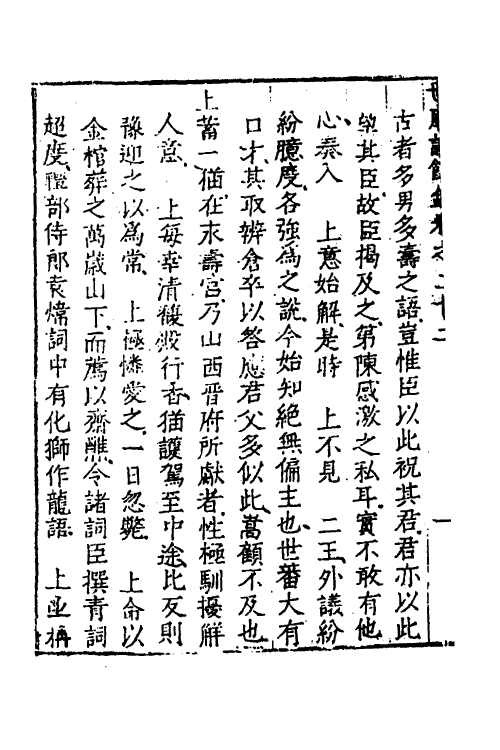 世廟識餘錄卷之二十二
一
古者多男多壽之語豈惟臣以此祝其君君亦以此
望其臣故臣揭及之第陳感激之私耳實不敢有他
心奏入　上意始解是時　上不見　二王外議紛
紛臆度各強爲之說今始知絕無偏主也世蕃大有
口才其取辨倉卒以答應君父多似此嵩顧不及也
上蓄一猫在永壽宮乃山西晉府所獻者性極馴擾解
人意　上每幸清馥殿行香猫護駕至中途比反則
豫迎之以爲常　上極憐愛之一日忽斃　上命以
金棺葬之萬歲山下而薦以齋醮令諸詞臣撰青詞
超度禮部侍郎袁煒詞中有化獅作龍語　上亟稱